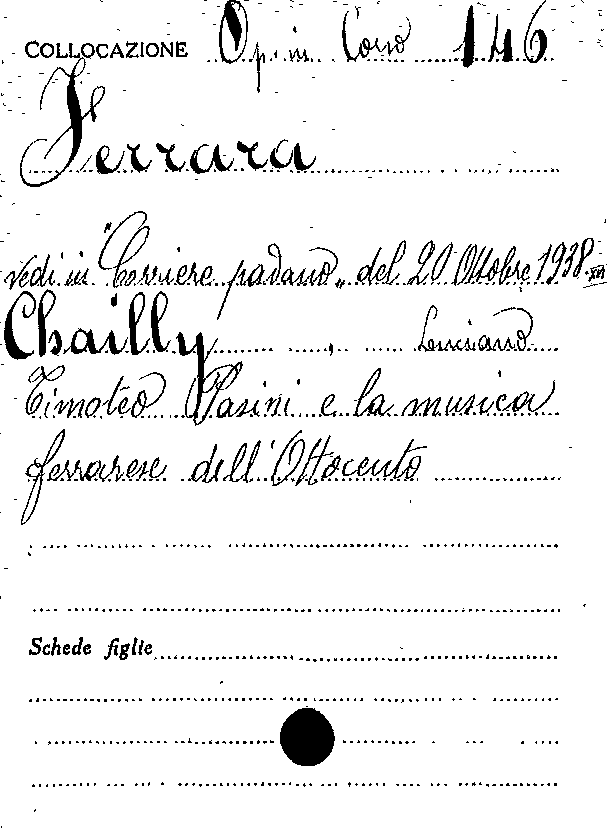 COLLOCAZIONE Op. in Corso 146
Ferrara
vedi in "Corriere padano" del 20 Ottobre 1938·XVI
Chailly , Luciano
Timoteo Pasini e la musica
ferrarese dell'Ottocento
Schede figlie